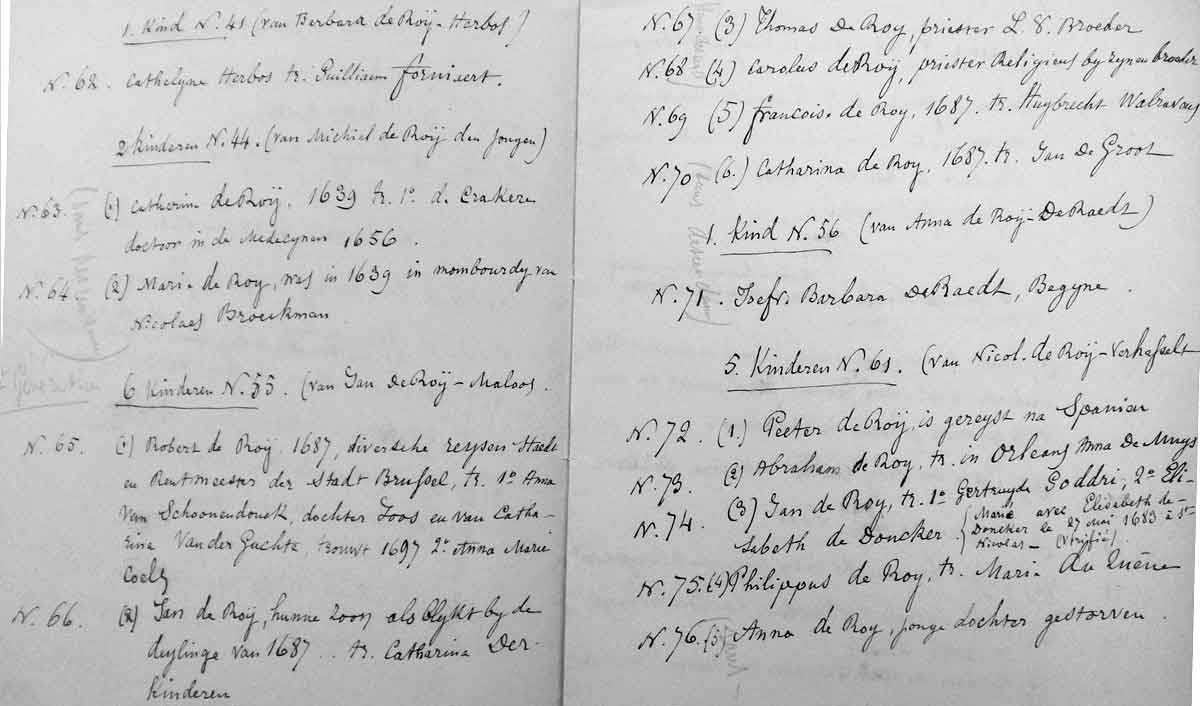 1. Kind N. 41 (van Berbara de Roÿ-Herbos)
N. 62. Cathelyne Herbos tr. Guilliaem fornixert.
2 Kinderen N. 44. (van Michiel de Roÿ den Jongen)
N. 63. (1) Catherine de Roÿ, 1639 tr. 1º. d. Crakere
doctoor in de Medecynen 1656.
N. 64 (2) Marie de Roy, was in 1639 in mombourdy van
Nicolaes Broeckman
6 Kinderen N. 55. (van Jan de Roÿ-Maloos.
N. 65. (1) Robert de Roÿ, 1687, diversche reysen Staedt
en Rentmeester der Stadt Brussel, tr. 1º Anna
van Schoonendonck, dochter Joos en van Catha-
rina Vander Guchte, trouwt 1697 2º Anna Marie
Coels
N. 66. (2) Jan de Roÿ, hunne zoon als blykt by de
deylinge van 1687.. tr. Catharina Der-
kinderen
N. 67 (3) Thomas de Roy, priester L. V. Broeder
N. 68 (4) Carolus de Roÿ, priester Religieus by zynen broeder
N. 69 (5) francois. de Roy, 1687. tr. Huybrecht Walravens
N. 70 (6.) Catharina de Roy, 1687. tr. Jan De Groot
1. Kind N. 56 (van Anna de Roÿ-De Raedt)
N. 71. Joefr. Barbara De Raedt, Begyne.
5. Kinderen N. 61. (van Nicol. de Roÿ-Verhasselt
N. 72. (1.) Peeter de Roÿ, is gereyst na Spanien
N. 73. (2) Abraham de Roy, tr. in Orleans Anna De Muys
N. 74. (3) Jan de Roy, tr. 1º Gertruyde Goddri, 2º Eli-
sabeth de Doncker.
Marié avec Elisabeth de-
Doncker le 27 mai 1683 à St-
Nicolas- (Vérifié).
N. 75. (4) Philippus de Roy, tr. Maria du Quêne
N. 76. (5) Anna de Roy, jonge dochter gestorven.